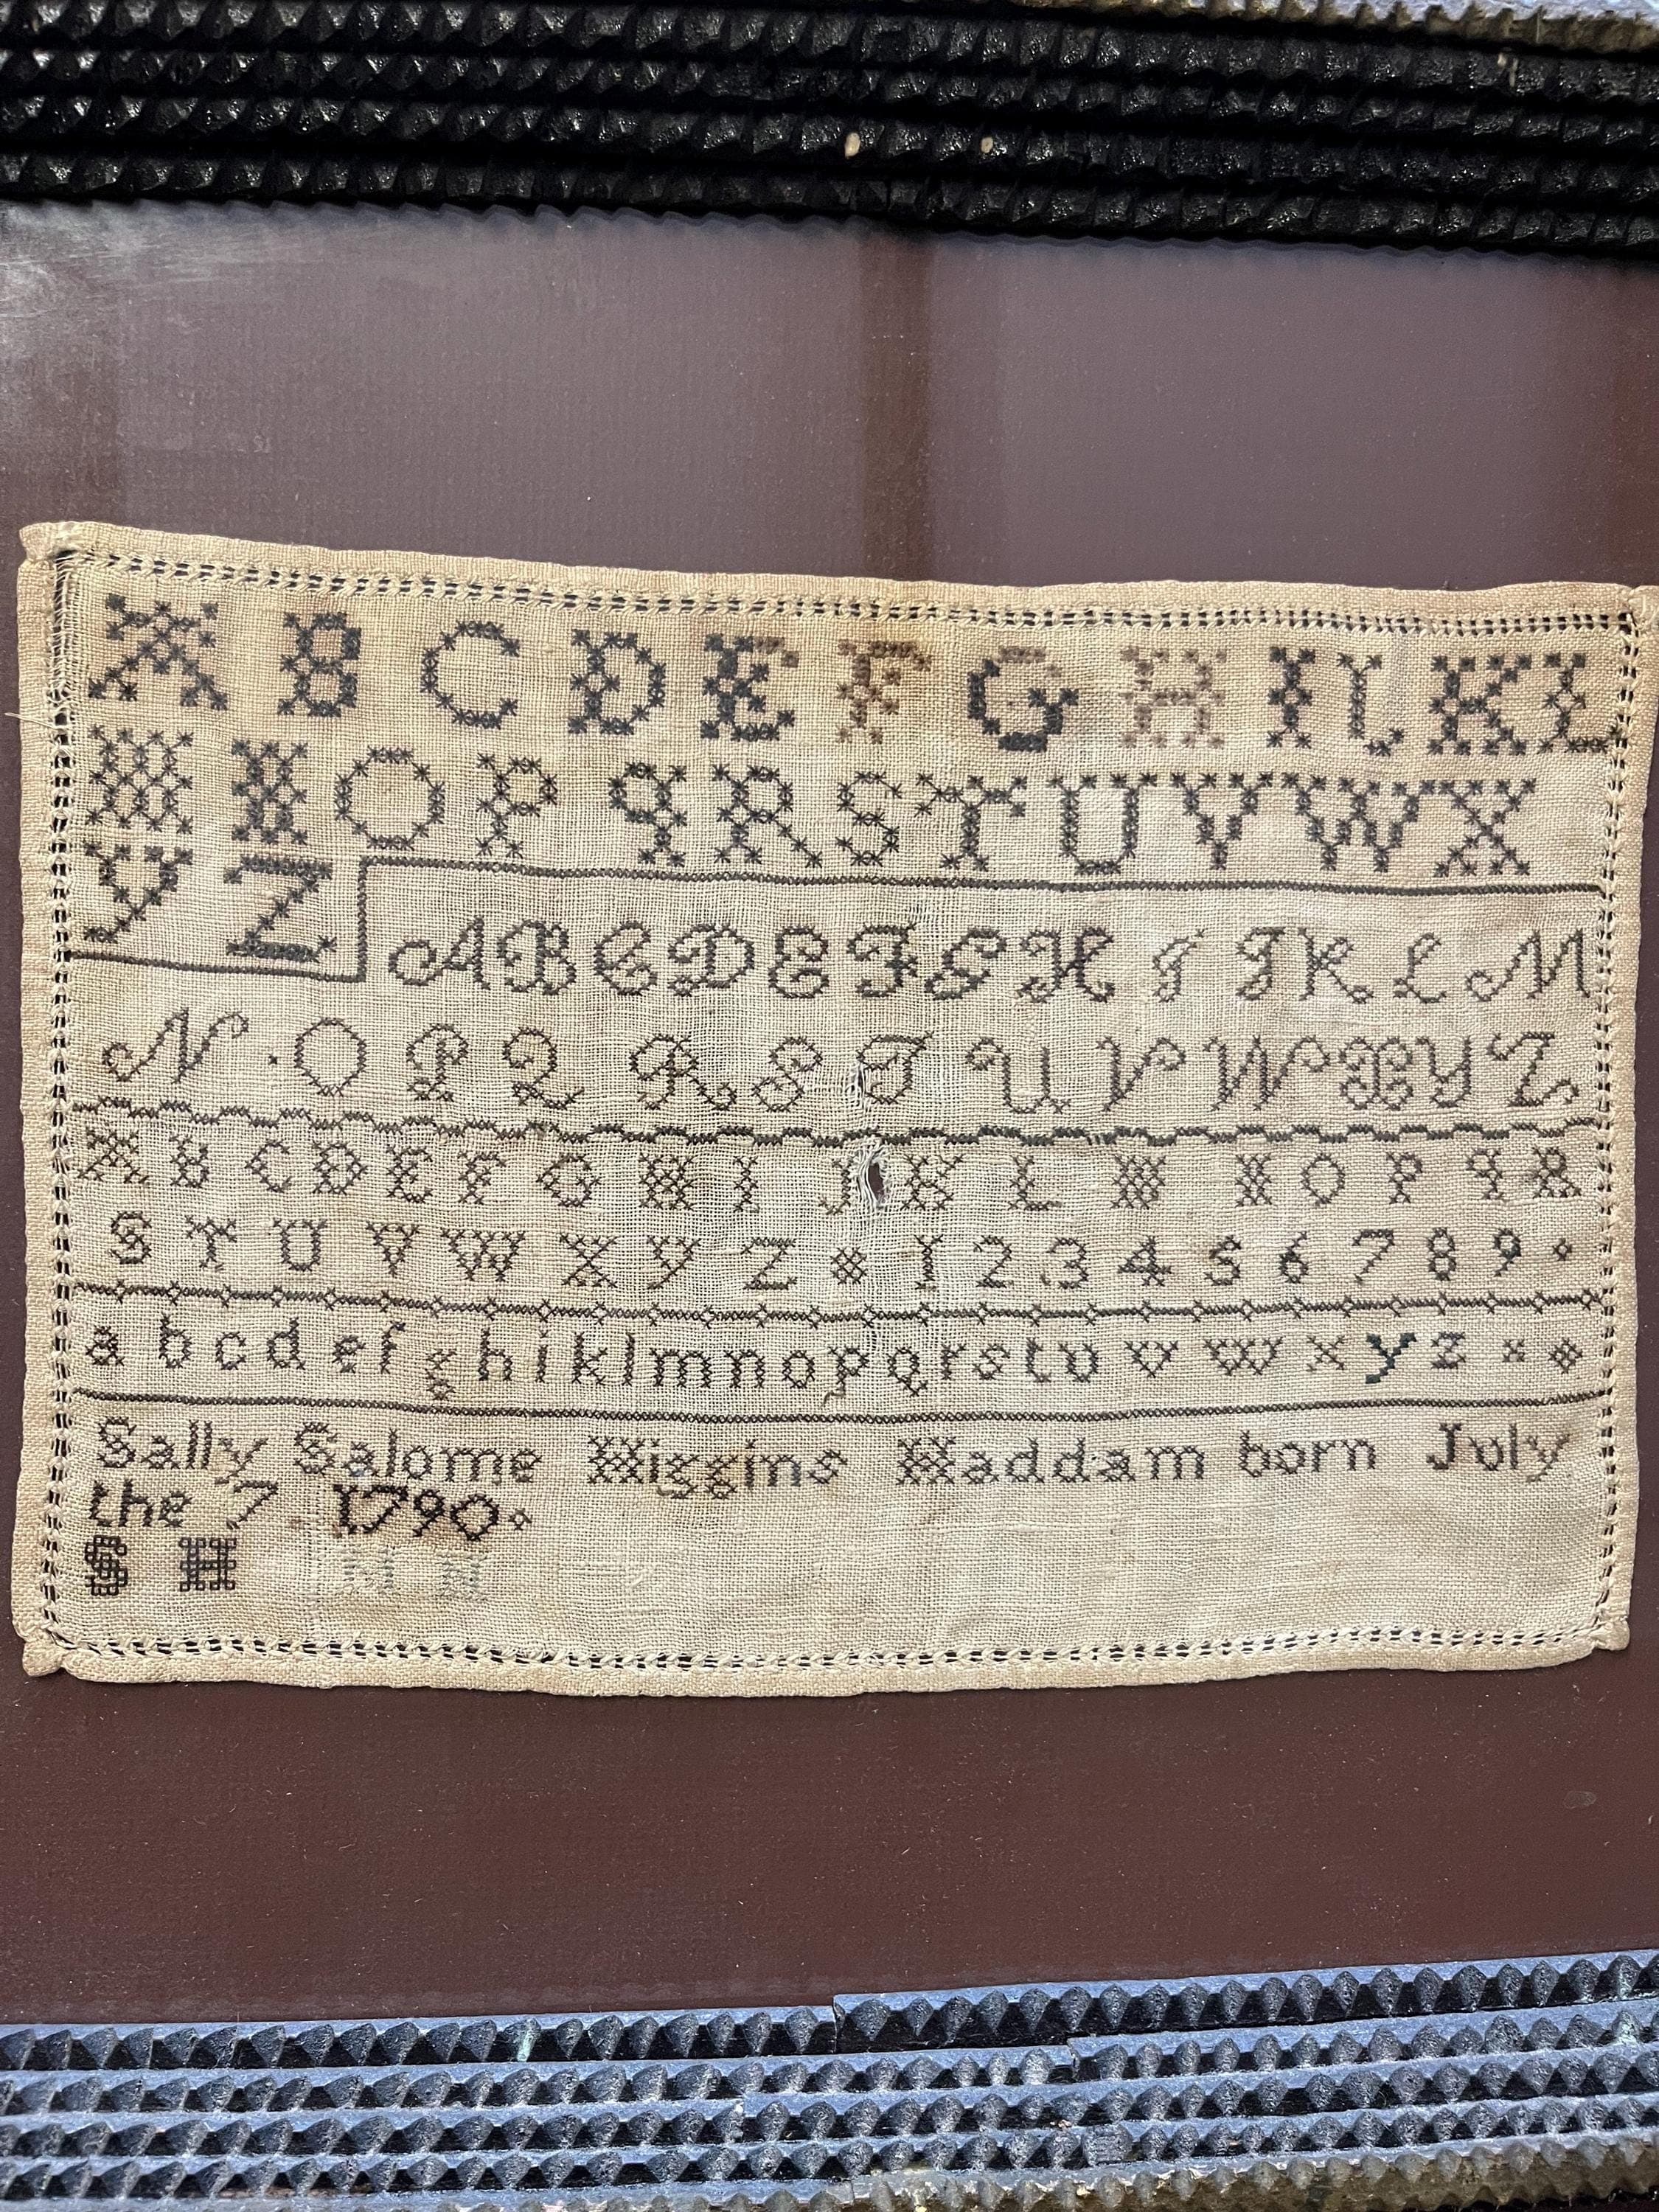 A B C D E F G H I J K L
M N O P q R S T U V W X
Y Z
A B C D E F G H I J K L M
N . O P Q R S T U V W X Y Z
A B C D E F G H I J K L M N O P q R
S T U V W X Y Z 1 2 3 4 5 6 7 8 9
a b c d e f g h i k l m n o p q r s t u v w x y z
Sally Salome Higgins Haddam born July
the 7 1790
S H